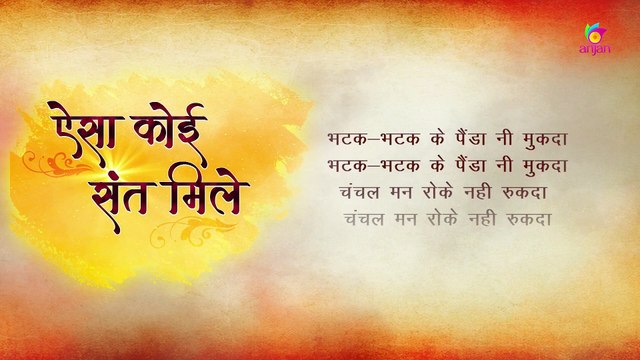 anjan
ऐसा कोई
संत मिले
भटक–भटक के पैंडा नी मुकदा
भटक–भटक के पैंडा नी मुकदा
चंचल मन रोके नही रुकदा
चंचल मन रोके नही रुकदा